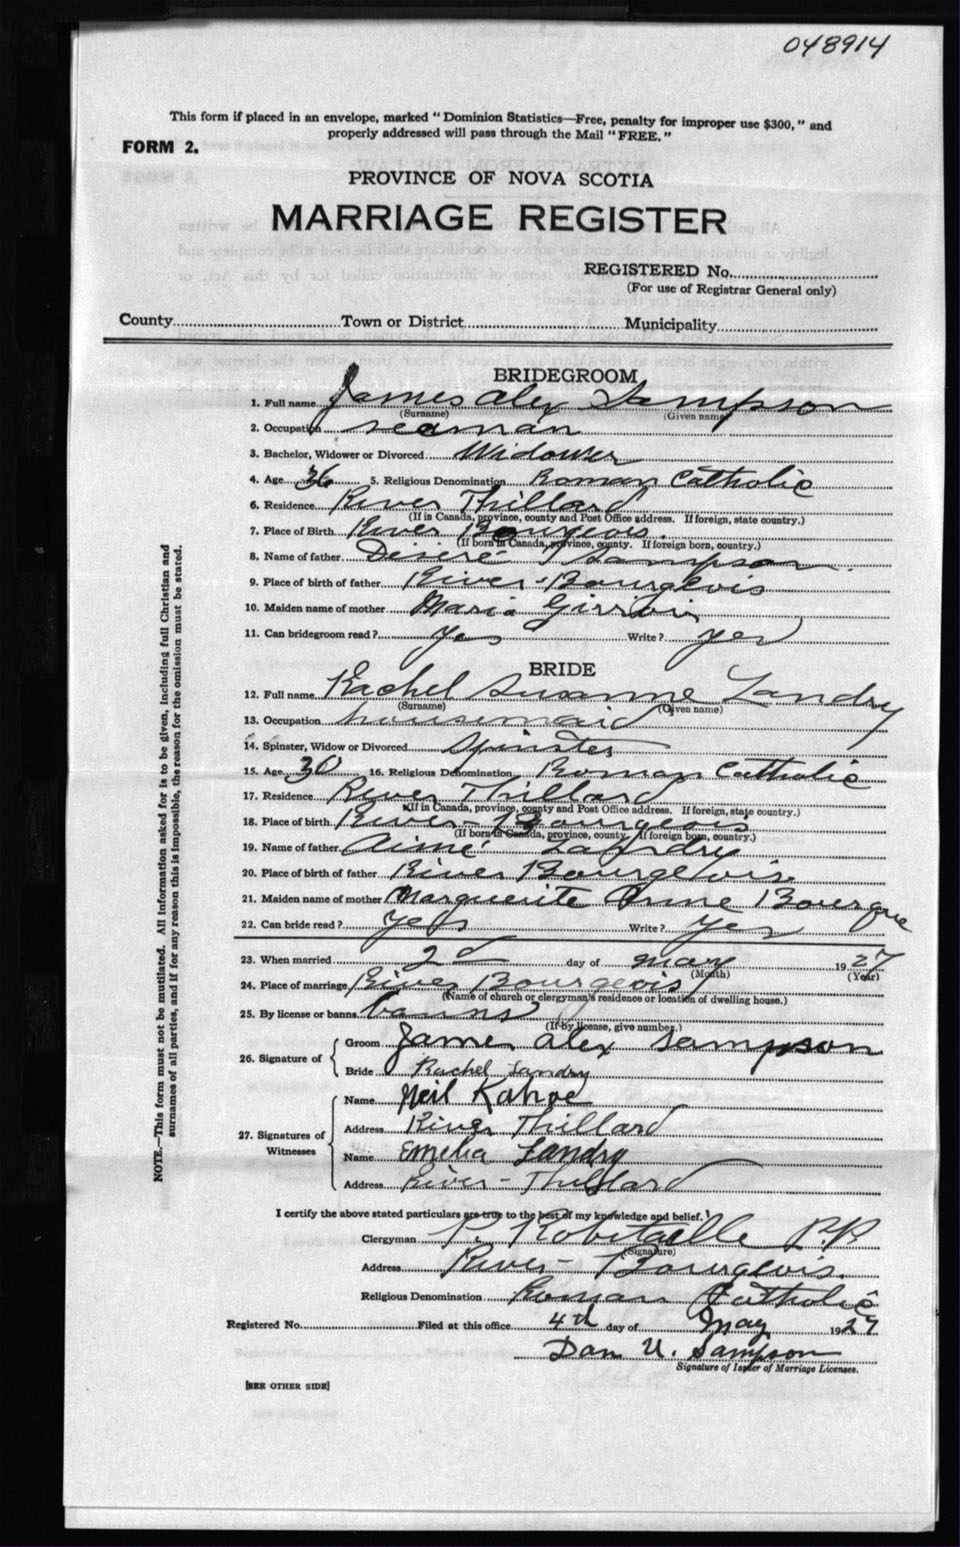 048914
This form if placed in an envelope, marked "Dominion Statistics—Free, penalty for improper use $300," and
properly addressed will pass through the Mail "FREE."
FORM 2.
PROVINCE OF NOVA SCOTIA
MARRIAGE REGISTER
REGISTERED No.
(For use of Registrar General only)
County Town or District Municipality
BRIDEGROOM
1. Full name James Alex Sampson
(Surname) (Given name)
2. Occupation seaman
3. Bachelor, Widower or Divorced Widower
4. Age 36 5. Religious Denomination Roman Catholic
6. Residence River Thillard
(If in Canada, province, county and Post Office address. If foreign, state country.)
7. Place of Birth River Bourgeois.
(If born in Canada, province, county. If foreign born, country.)
8. Name of father Desiré Sampson.
9. Place of birth of father River-Bourgeois
10. Maiden name of mother Maria
11. Can bridegroom read? Yes Write? yes
BRIDE
12. Full name Rachel Susanne Landry
(Surname) (Given name)
13. Occupation housemaid
14. Spinster, Widow or Divorced Spinster
15. Age 30 16. Religious Denomination Roman Catholic
17. Residence River Thillard
(If in Canada, province, county and Post Office address. If foreign, state country.)
18. Place of birth River-Bourgeois
(If born in Canada, province, county. If foreign born, country.)
19. Name of father Aimé Landry
20. Place of birth of father River Bourgeois.
21. Maiden name of mother Marguerite Anne Bourque
22. Can bride read? yes Write? yes
23. When married 2d day of May 1927
(Month) (Year)
24. Place of marriage River Bourgeois
(Name of church or clergyman's residence or location of dwelling house.)
25. By license or banns banns
(If by license, give number.)
26. Signature of
Groom James Alex Sampson
Bride Rachel Landry
27. Signatures of Witnesses
Name Neil Kahoe
Address River Thillard
Name Emelia Landry
Address River-Thillard
I certify the above stated particulars are true to the best of my knowledge and belief.
Clergyman P. Robitaille P.P.
(Signature)
Address River-Bourgeois.
Religious Denomination Roman Catholic
Registered No. Filed at this office 4th day of May 1927
Dan U. Sampson
Signature of Issuer of Marriage Licenses.
[SEE OTHER SIDE]
NOTE.—This form must not be mutilated. All information asked for is to be given, including full Christian and
surnames of all parties, and if for any reason this is impossible, the reason for the omission must be stated.